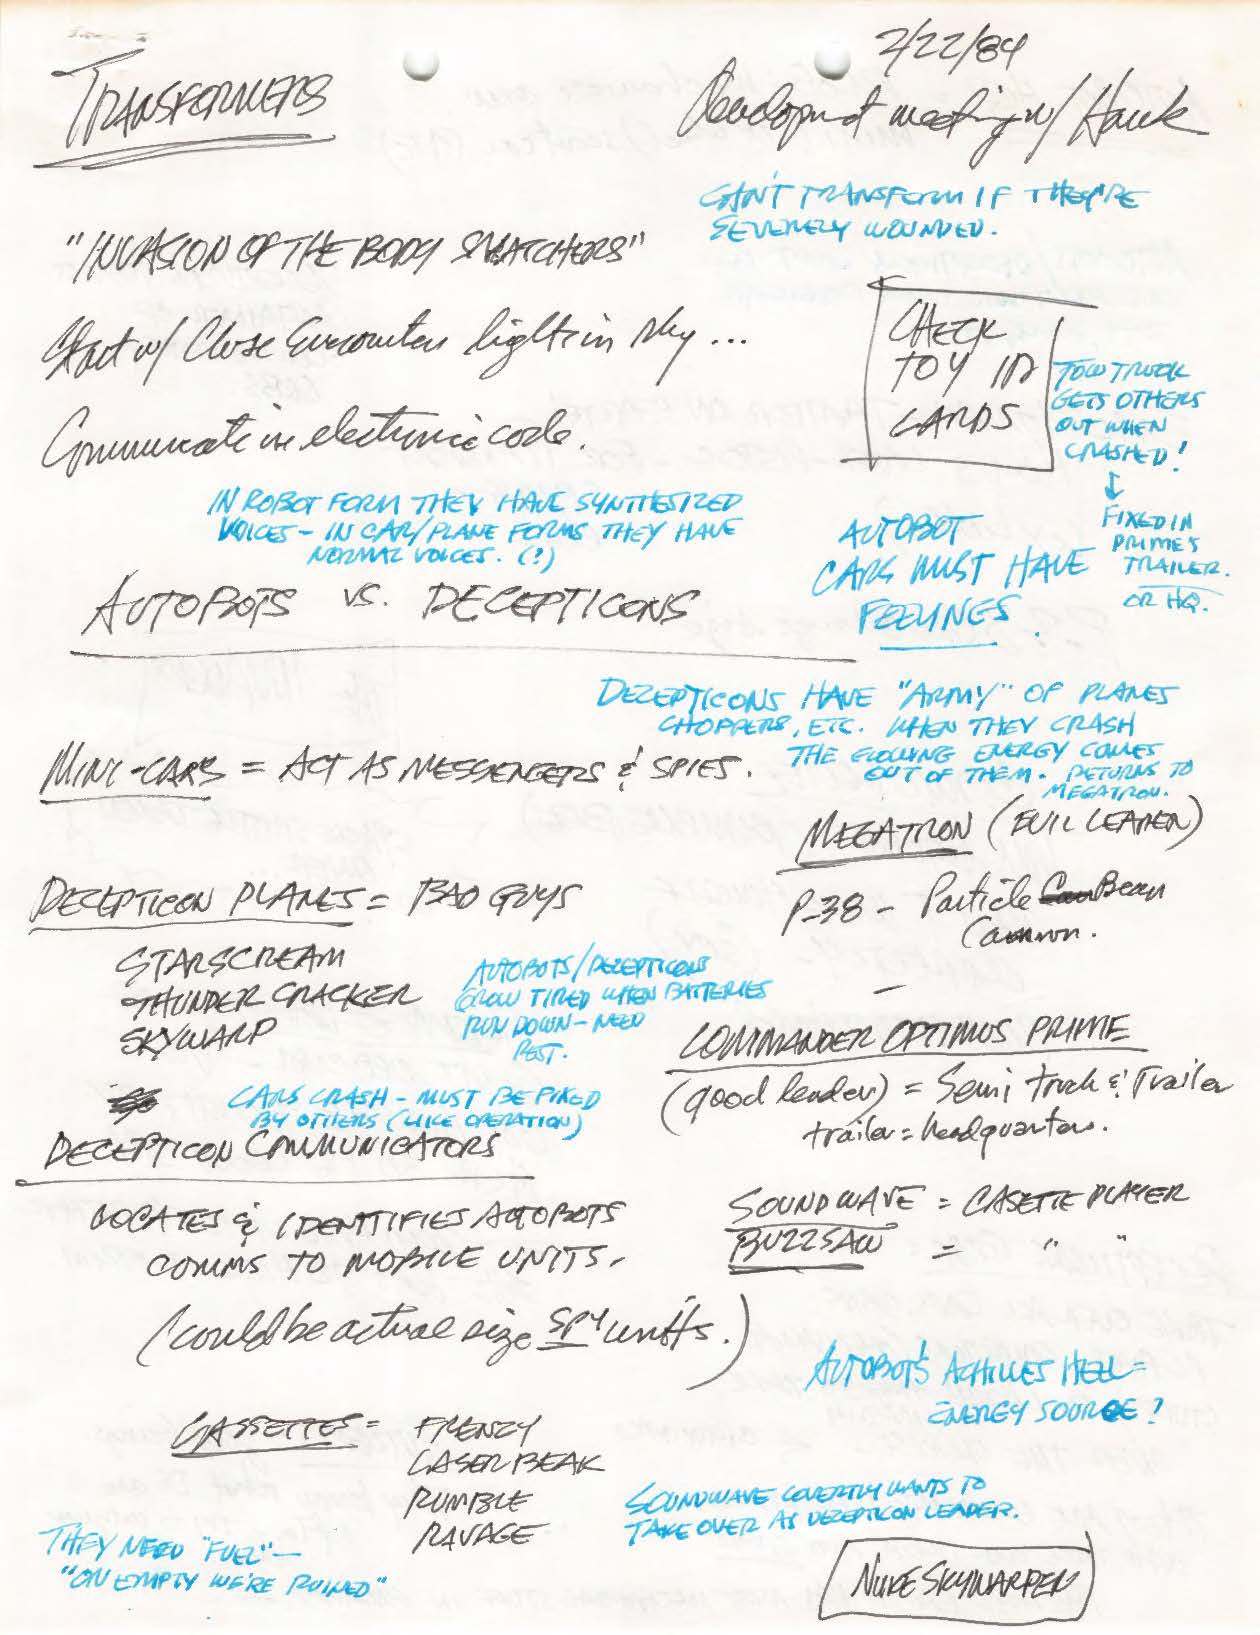 TRANSFORMERS
2/22/84
Development meeting w/ Hank
CAN'T TRANSFORM IF THEY'RE
SEVERELY WOUNDED.
"INVASION OF THE BODY SNATCHERS"
Start w/ Close Encounters lights in sky ...
Communicate in electronic code.
CHECK
TOY ID
CARDS
TOW TRUCK
GETS OTHERS
OUT WHEN
CRASHED!
↓
FIXED IN
PRIME'S
TRAILER.
OR HQ.
IN ROBOT FORM THEY HAVE SYNTHESIZED
VOICES - IN CAR/PLANE FORMS THEY HAVE
NORMAL VOICES. (?)
AUTOBOT
CARS MUST HAVE
FEELINGS.
AUTOBOTS VS. DECEPTICONS
DECEPTICONS HAVE "ARMY" OF PLANES
CHOPPERS, ETC. WHEN THEY CRASH
THE GLOWING ENERGY COMES
OUT OF THEM. RETURNS TO
MEGATRON.
MINI-CARS = ACT AS MESSENGERS & SPIES.
MEGATRON (EVIL LEADER)
P-38 - Particle Beam
Cannon.
DECEPTICON PLANES = BAD GUYS
STARSCREAM
THUNDER CRACKER
SKYWARP
AUTOBOTS/DECEPTICONS
GROW TIRED WHEN BATTERIES
RUN DOWN - NEED
REST.
COMMANDER OPTIMUS PRIME
(good leader) = Semi truck & Trailer
trailer = headquarters.
CARS CRASH - MUST BE FIXED
BY OTHERS (LIKE OPERATION)
DECEPTICON COMMUNICATORS
LOCATES & IDENTIFIES AUTOBOTS
COMMS TO MOBILE UNITS.
(could be actual size SPY units.)
SOUNDWAVE = CASETTE PLAYER
BUZZSAW = " "
AUTOBOT'S ACHILLES HEEL =
ENERGY SOURCE?
CASSETTES = FRENZY
LASER BEAK
RUMBLE
RAVAGE
SOUNDWAVE COVERTLY WANTS TO
TAKE OVER AS DECEPTICON LEADER.
THEY NEED "FUEL" -
"ON EMPTY WE'RE RUINED"
NUKE SKYWARPER